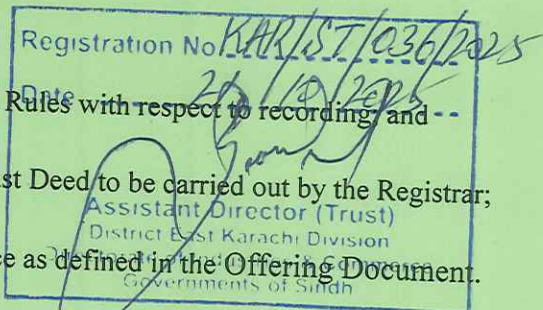 Registration No KAR/ST/036/2025
Date
Rules with respect to recording, and
st Deed to be carried out by the Registrar;
Assistant Director (Trust)
District East Karachi Division
ce as defined in the Offering Document.
Governments of Sindh